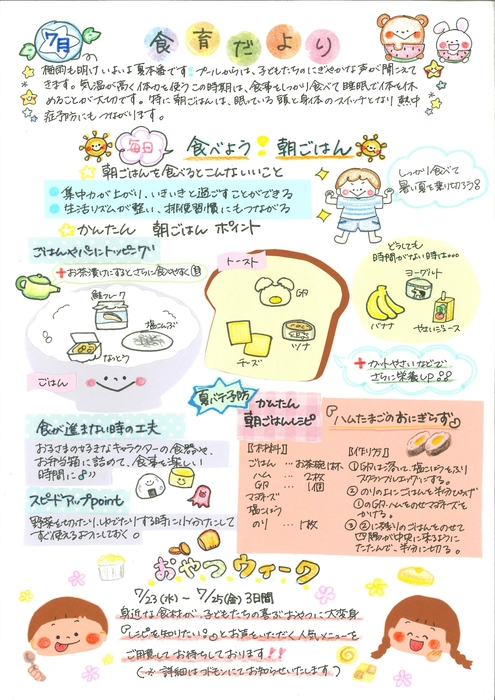 7月
食育だより
梅雨も明け いよいよ夏本番です！プールからは、子どもたちのにぎやかな声が聞こえて
きます。気温が高く体力を使うこの時期は、食事をしっかり食べて睡眠で体を休
めることが大切です。特に朝ごはんは、眠っている頭と身体のスイッチとなり熱中
症予防にもつながります。
毎日 食べよう！朝ごはん
朝ごはんを食べるとこんないいこと
集中力が上がり、いきいきと過ごすことができる
生活リズムが整い、排便習慣にもつながる
しっかり食べて
暑い夏を乗り切ろう
かんたん 朝ごはん ポイント
ごはんやパンにトッピング
+お茶漬けにするとさらに食べやすく
鮭フレーク
塩こんぶ
なっとう
ごはん
トースト
チーズ
ツナ
どうしても
時間がない時は...
ヨーグルト
バナナ
やさいジュース
+カットやさいなどで
さらに栄養UP
食が進まない時の工夫
お子さまの好きなキャラクターの食器や、
お弁当箱に詰めて、食事を楽しい
時間に
スピードアップpoint
野菜を切ったり、ゆでたりする時に小分けにして
すぐ使えるようにしておく。
夏バテ予防
かんたん
朝ごはんレシピ
『ハムたまごのおにぎらず』
【材料】
ごはん … お茶碗1杯
ハム … 2枚
マヨネーズ
塩こんぶ
のり … 1枚
【作り方】
スクランブルエッグにする。
②のりの上にごはんをのせひろげ
かける。
③②に残りのごはんをのせて
四隅が中央に来るように
たたんで、半分に切る。
おやつウィーク
7/23(水)～7/25(金) 3日間
身近な食材が、子どもたちの喜ぶおやつに大変身
『レシピを知りたい！』とお声をいただく人気メニューを
ご用意してお待ちしております！！
(※詳細はコドモンにてお知らせいたします)